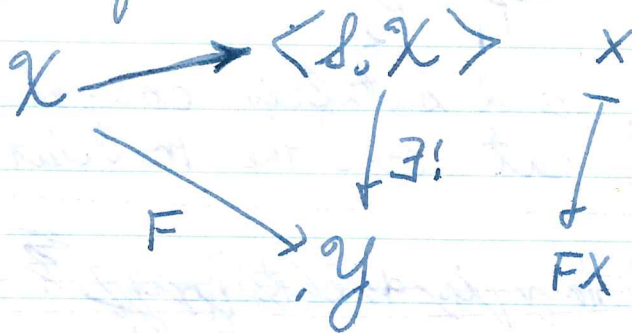 𝒳 <𝒮, 𝒳> X
∃!
F 𝒴 FX